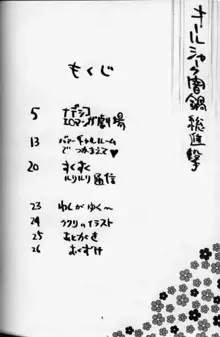 オールジャンク闇鍋総進撃
もくじ
5 ナデシコ
エロマンガ劇場
13 パワーギャルルーム
でつかまえて♥
20 すくすく
ルリルリ通信
23 ゆんがゆく〜
24 ラクリのイラスト
25 あとがき
26 おくずけ